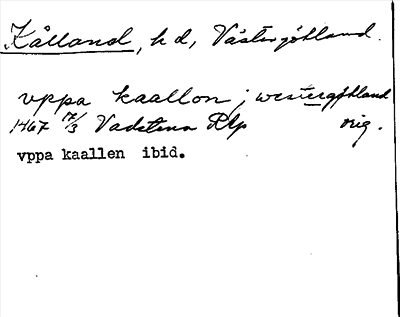 Kålland, hd, Västergötland.
vppa kaallon j westergøtland
1467 17/3 Vadstena Rkp orig.
vppa kaallen ibid.